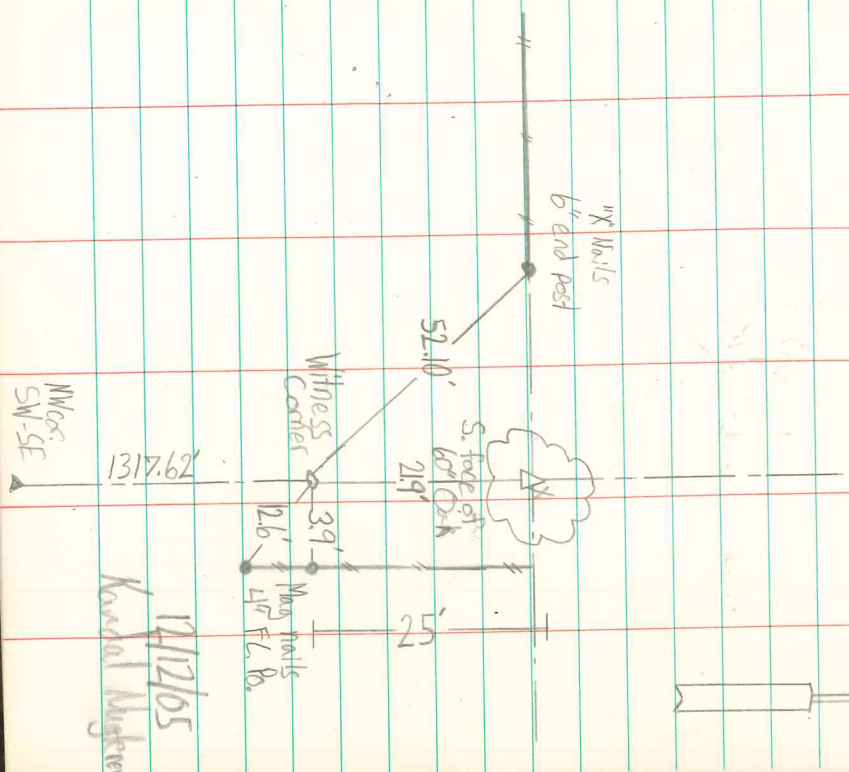 "X" Nails
6" end post
52.10'
S. face of
60" Oak
2.9'
X
Witness
Corner
NW cor.
SW-SE
1317.62'
3.9'
12.6'
Mag nails
4" F.L. Po.
25'
12/12/05